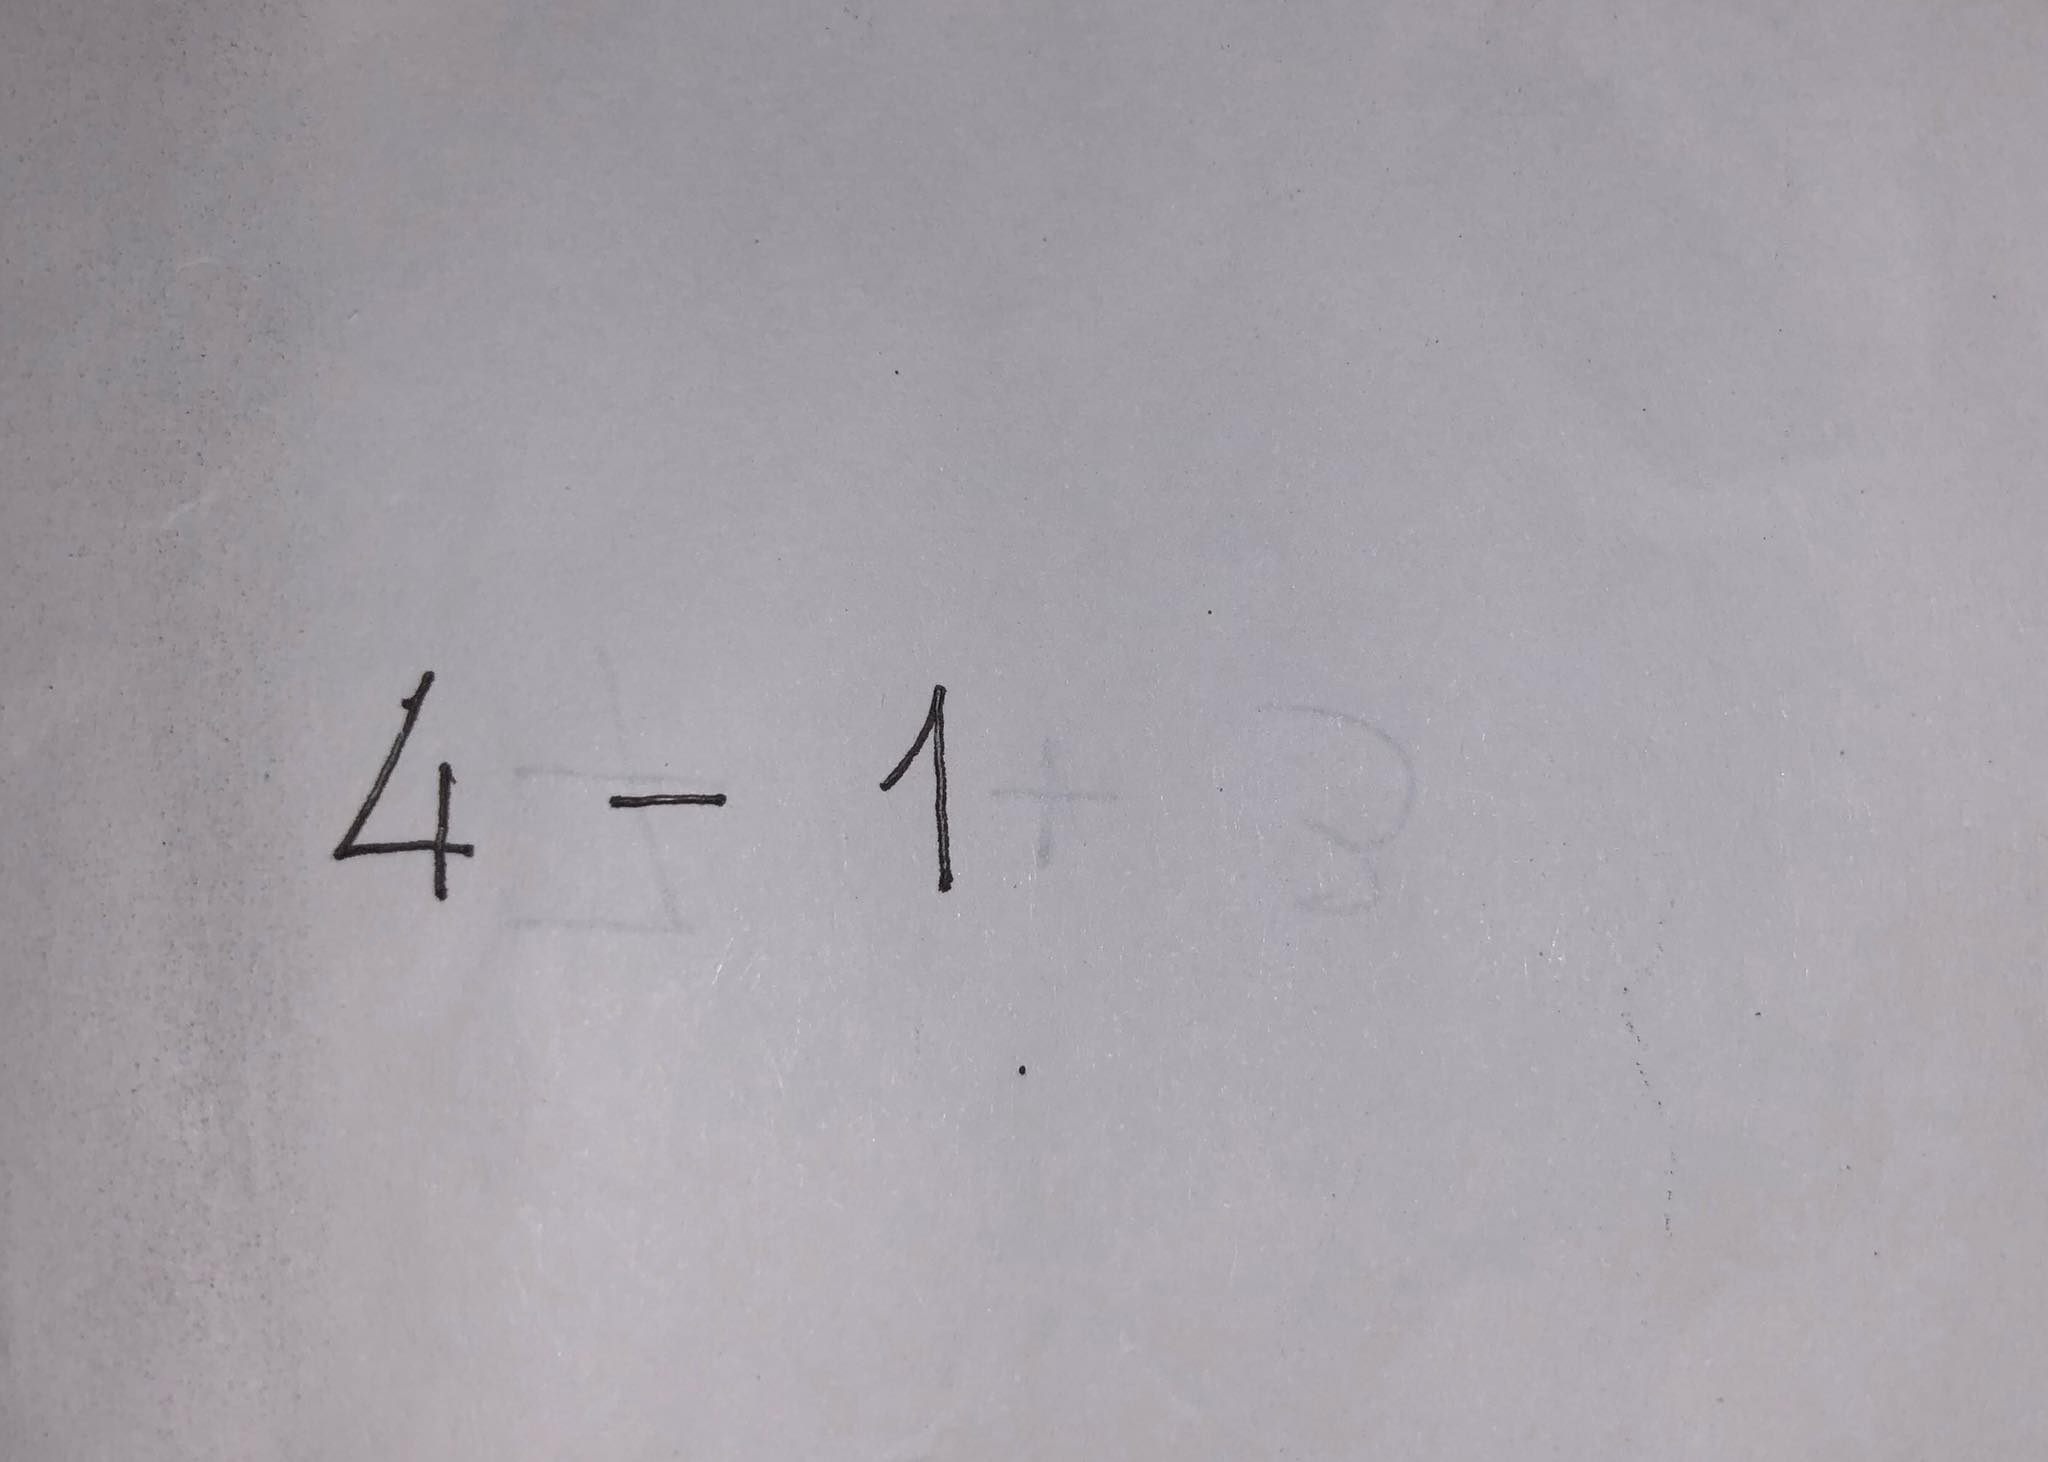 4 - 1